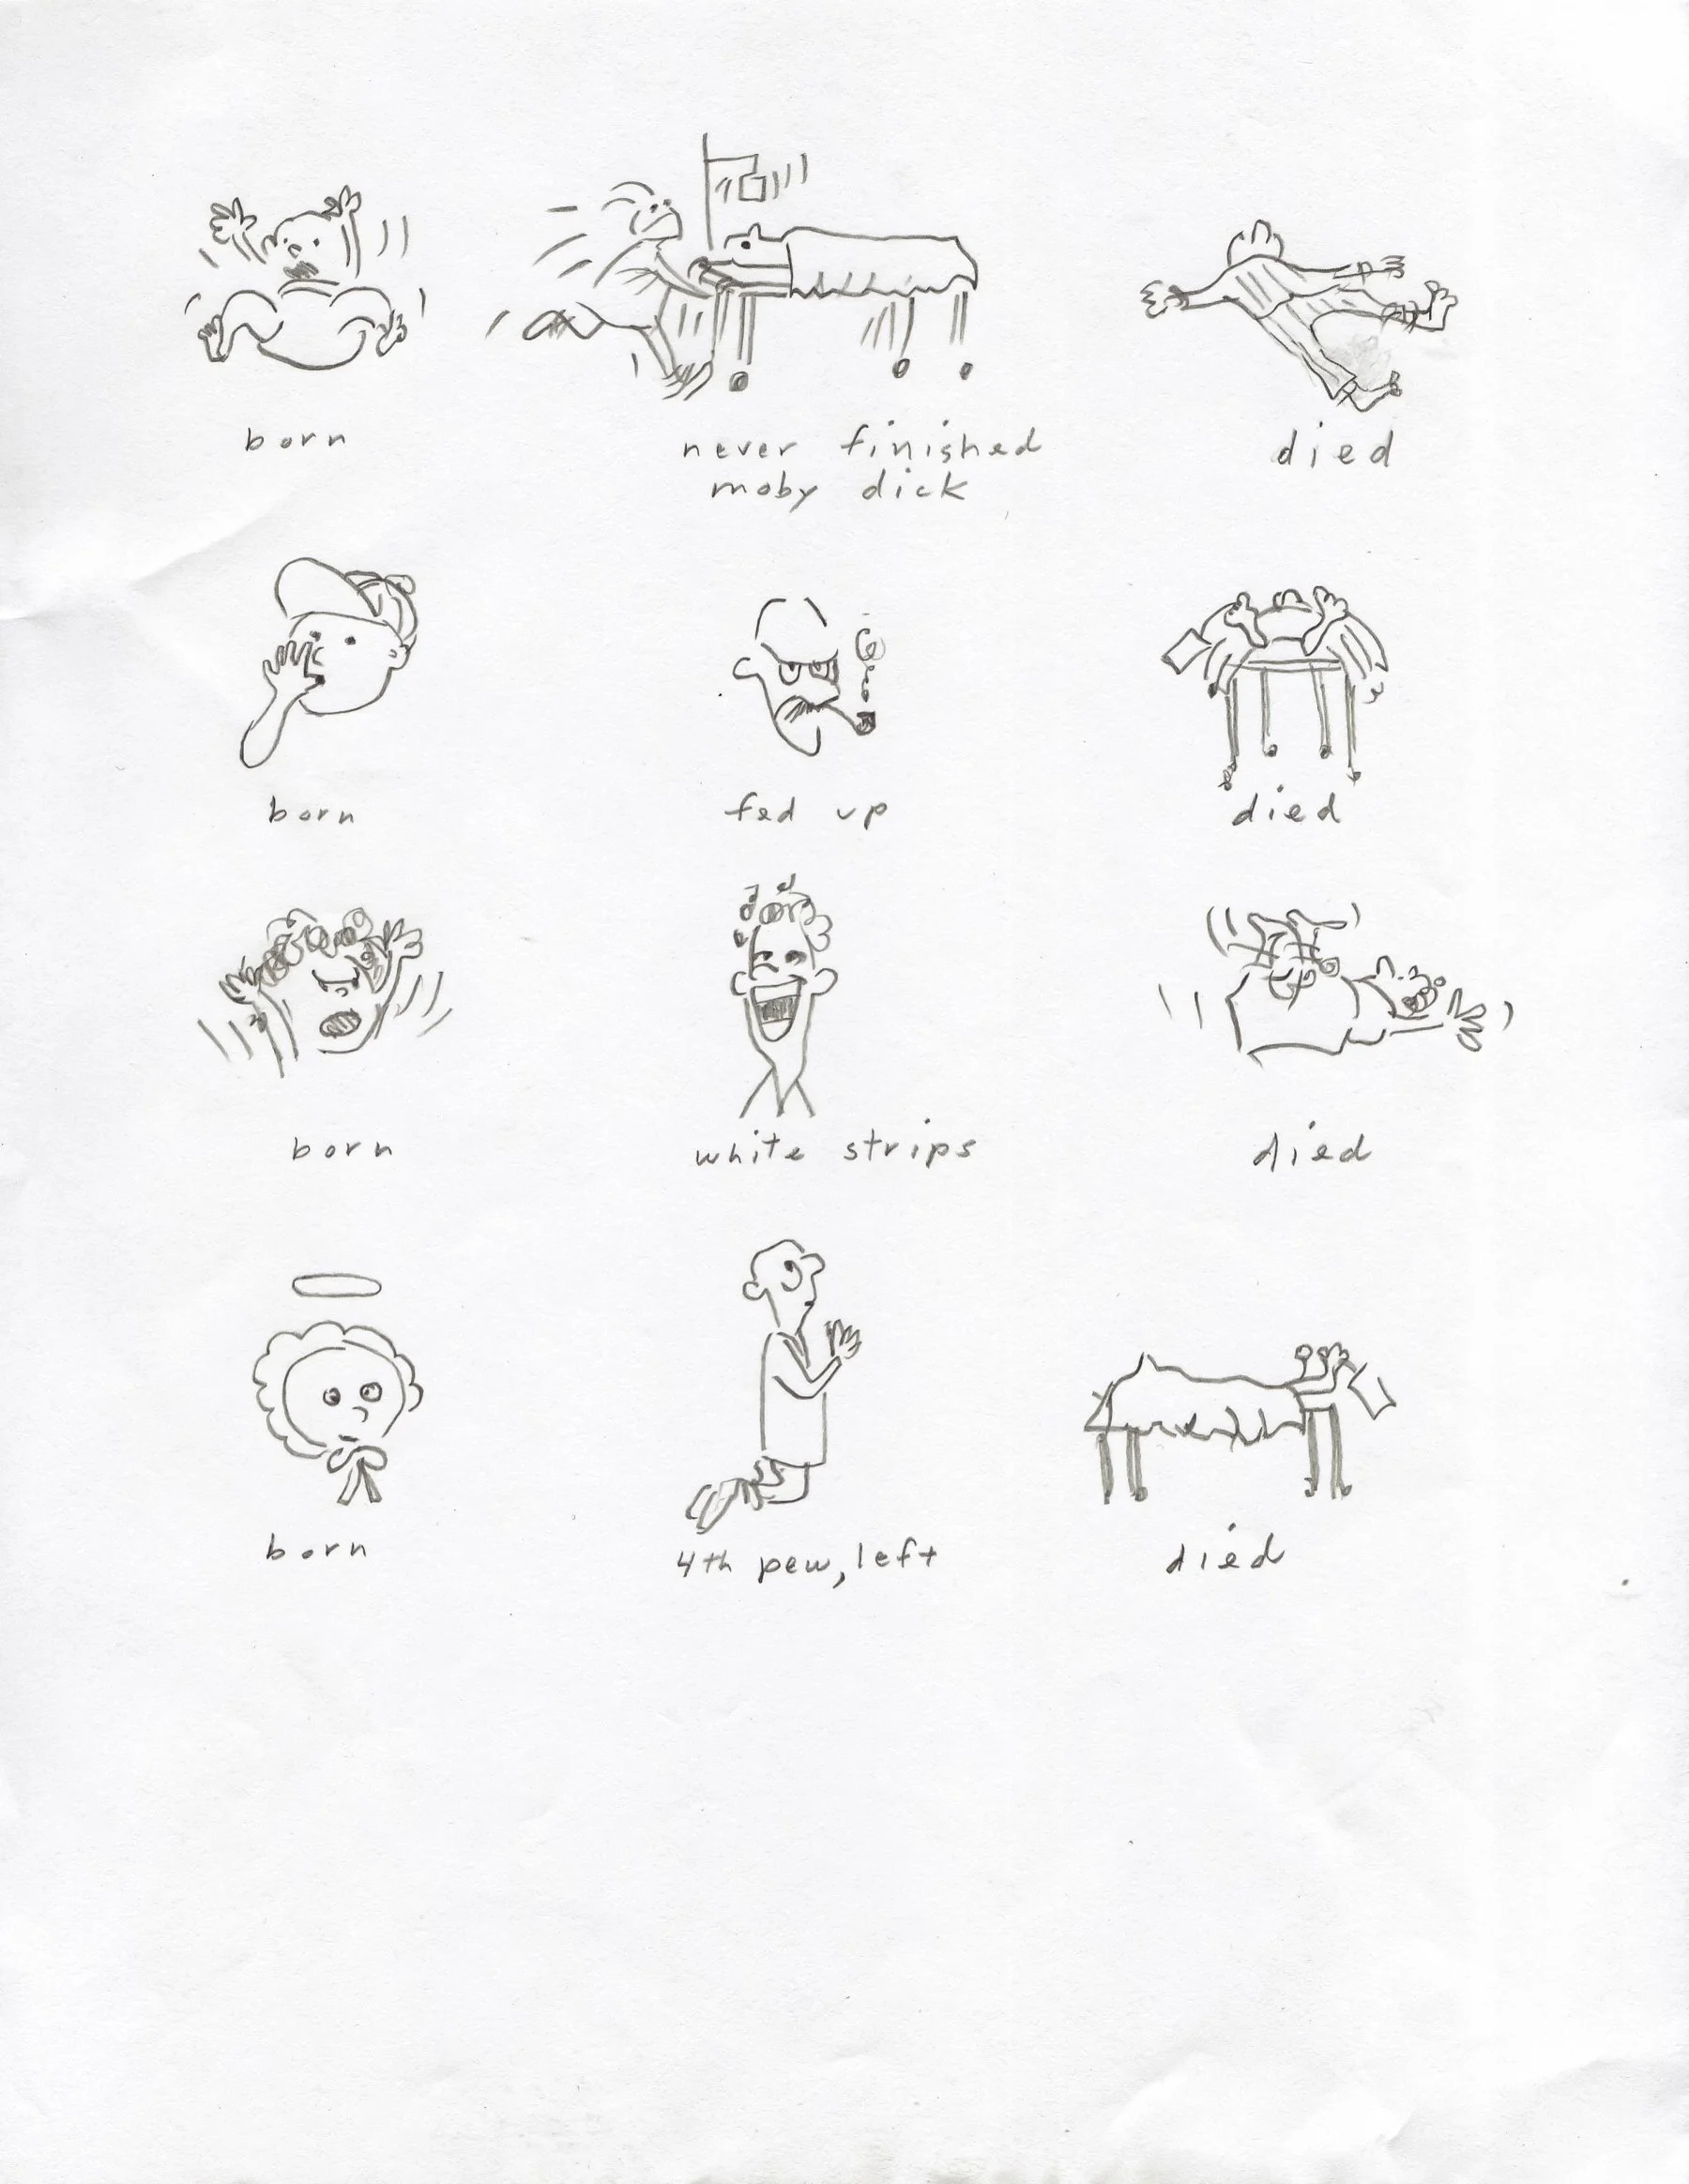 born
never finished
moby dick
died
born
fed up
died
born
white strips
died
born
4th pew, left
died